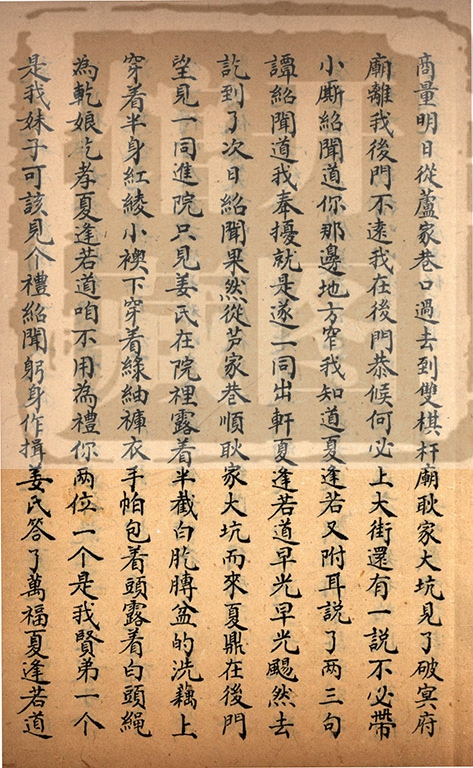 商量明日從蘆家巷口過去到雙棋杆廟耿家大坑見了破冥府
廟離我後門不遠我在後門恭候何必上大街還有一說不必帶
小廝紹聞道你那邊地方窄我知道夏逢若又附耳説了两三句
譚紹聞道我奉擾就是遂一同出軒夏逢若道早光早光颺然去
訖到了次日紹聞果然從芦家巷順耿家大坑而來夏鼎在後門
望見一同進院只見姜氏在院裡露着半截白肐膊盆的洗藕上
穿着半身紅綾小襖下穿着緑紬褲衣手帕包着頭露着白頭繩
為乾娘乞孝夏逢若道咱不用為禮你两位一个是我賢弟一个
是我妹子可該見个禮紹聞躬身作揖姜氏答了萬福夏逢若道